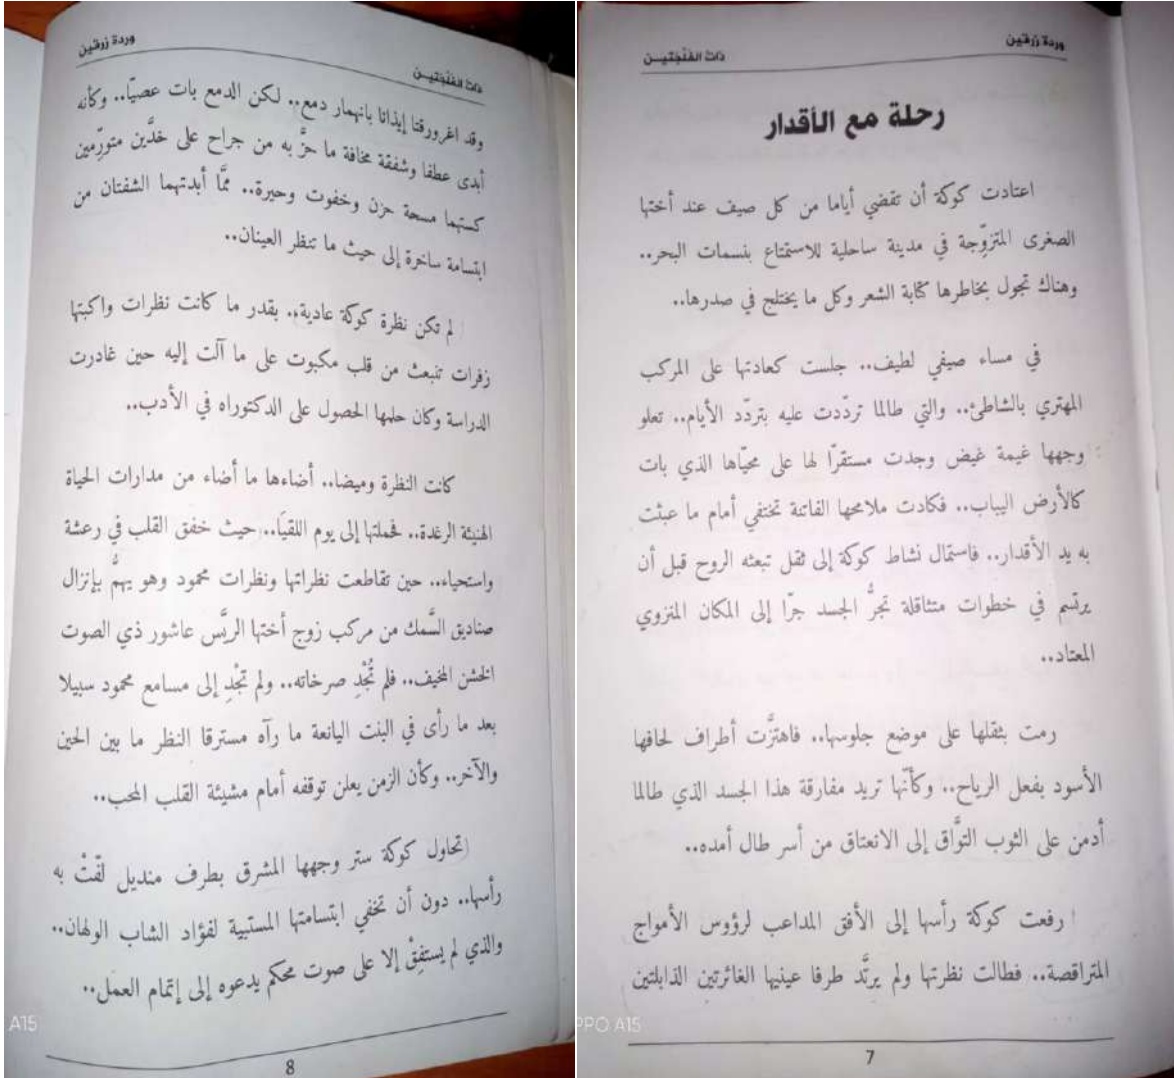 وردة زرقين
ذات الفنجتيـن
رحلة مع الأقدار
اعتادت كوكة أن تقضي أياما من كل صيف عند أختها
الصغرى المتزوِّجة في مدينة ساحلية للاستمتاع بنسمات البحر..
وهناك تجول بخاطرها كتابة الشعر وكل ما يختلج في صدرها..
في مساء صيفي لطيف.. جلست كعادتها على المركب
المهتري بالشاطئ.. والتي طالما تردّدت عليه بتردّد الأيام.. تعلو
وجهها غيمة غيض وجدت مستقرّا لها على محيّاها الذي بات
كالأرض اليباب.. فكادت ملامحها الفاتنة تختفي أمام ما عبثت
به يد الأقدار.. فاستمال نشاط كوكة إلى ثقل تبعثه الروح قبل أن
يرتسم في خطوات متثاقلة تجرُّ الجسد جرّا إلى المكان المنزوي
المعتاد..
رمت بثقلها على موضع جلوسها.. فاهتزَّت أطراف لحافها
الأسود بفعل الرياح.. وكأنّها تريد مفارقة هذا الجسد الذي طالما
أدمن على الثوب التوَّاق إلى الانعتاق من أسر طال أمده..
رفعت كوكة رأسها إلى الأفق المداعب لرؤوس الأمواج
المتراقصة.. فطالت نظرتها ولم يرتَّد طرفا عينيها الغائرتين الذابلتين
PPO A15
7
وردة زرقين
ذات الفنجتيـن
وقد اغرورقتا إيذانا بانهمار دمع.. لكن الدمع بات عصيّا.. وكأنه
أبدى عطفا وشفقة مخافة ما حزَّ به من جراح على خدَّين متورِّمين
كستهما مسحة حزن وخفوت وحيرة.. ممَّا أبدتهما الشفتان من
ابتسامة ساخرة إلى حيث ما تنظر العينان..
لم تكن نظرة كوكة عادية.. بقدر ما كانت نظرات واكبتها
زفرات تنبعث من قلب مكبوت على ما آلت إليه حين غادرت
الدراسة وكان حلمها الحصول على الدكتوراه في الأدب..
كانت النظرة وميضا.. أضاءها ما أضاء من مدارات الحياة
الهنيئة الرغدة.. فحملتها إلى يوم اللقيَا.. حيث خفق القلب في رعشة
واستحياء.. حين تقاطعت نظراتها ونظرات محمود وهو يهمُّ بإنزال
صناديق السَّمك من مركب زوج أختها الريَّس عاشور ذي الصوت
الخشن المخيف.. فلم تُجْدِ صرخاته.. ولم تجْدِ إلى مسامع محمود سبيلا
بعد ما رأى في البنت اليانعة ما رآه مسترقا النظر ما بين الحين
والآخر.. وكأن الزمن يعلن توقفه أمام مشيئة القلب المحب..
تحاول كوكة ستر وجهها المشرق بطرف منديل لفّتْ به
رأسها.. دون أن تخفي ابتسامتها المستبية لفؤاد الشاب الولهان..
والذي لم يستفِقْ إلا على صوت محكم يدعوه إلى إتمام العمل..
A15
8